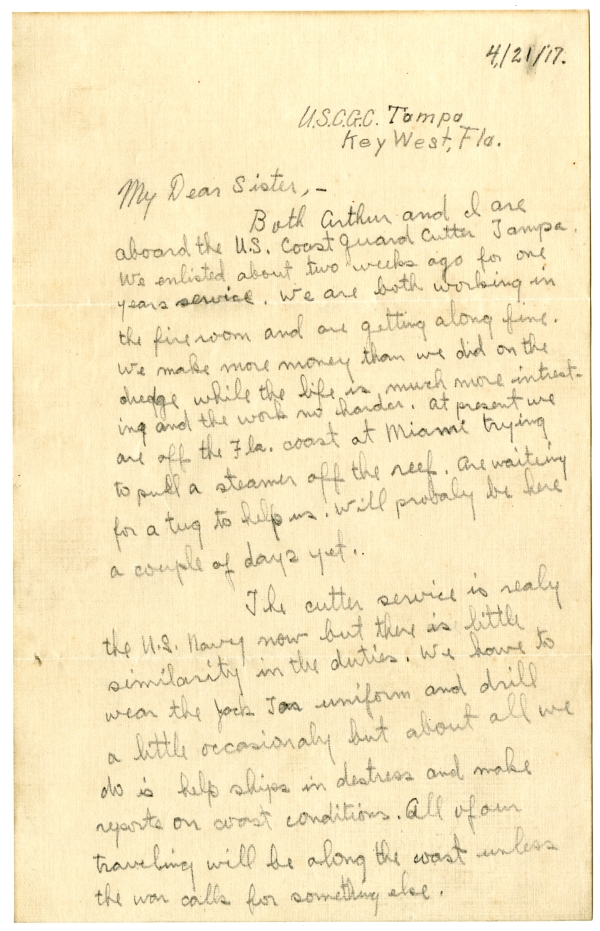 4/21/17.
U.S.C.G.C. Tampa
Key West, Fla.
My Dear Sister,-
Both Arthur and I are
aboard the U.S. Coast Guard Cutter Tampa.
We enlisted about two weeks ago for one
years service. We are both working in
the fire room and are getting along fine.
We make more money than we did on the
dredge while the life is much more intrest-
ing and the work no harder. At present we
are off the Fla. coast at Miami trying
to pull a steamer off the reef. Are waiting
for a tug to help us. Will probaly be here
a couple of days yet..
The cutter service is realy
the U.S. Navy now but there is little
similarity in the duties. We have to
wear the Jack Tar uniform and drill
a little occasionaly but about all we
do is help ships in destress and make
reports on coast conditions. All of our
traveling will be along the coast unless
the war calls for something else.